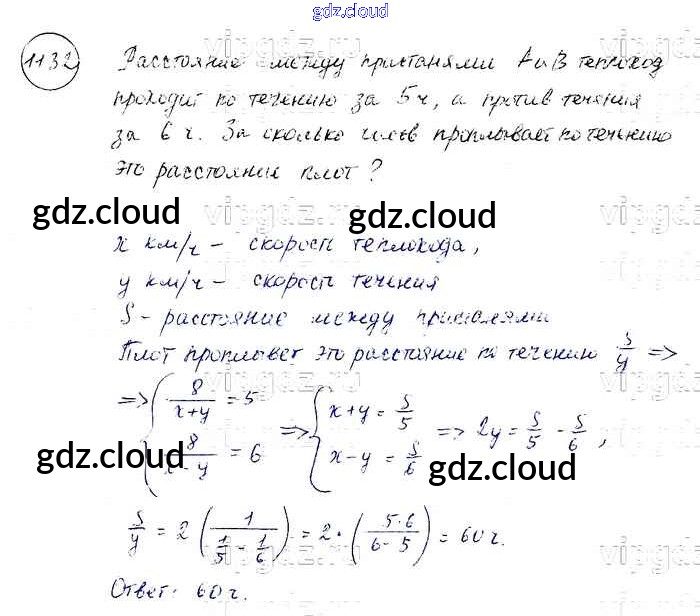 gdz.cloud
1132 Расстояние между пристанями А и В теплоход
проходит по течению за 5 ч, а против течения
за 6 ч. За сколько часов проплывает по течению
это расстояние плот?
gdz.cloud gdz.cloud
x км/ч - скорость теплохода,
y км/ч - скорость течения
S - расстояние между пристанями
Плот проплывет это расстояние по течению S/y =>
=> { 8/(x+y) = 5 => { x+y = S/5 => 2y = S/5 - S/6,
8/(x-y) = 6 x-y = S/6
gdz.cloud gdz.cloud
S/y = 2 (1/(1/5 - 1/6)) = 2 · (5·6/(6-5)) = 60 ч.
Ответ: 60 ч.